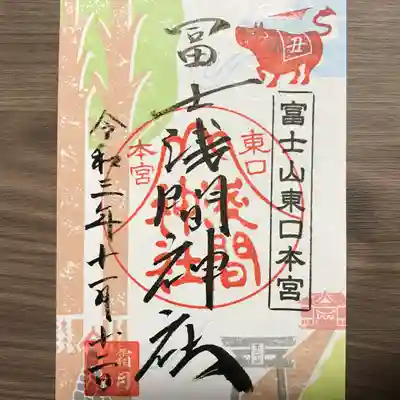 丑
富士山東口本宮
冨士浅間神社
東口
本宮
淺間
神社
令和三年十一月
霜月